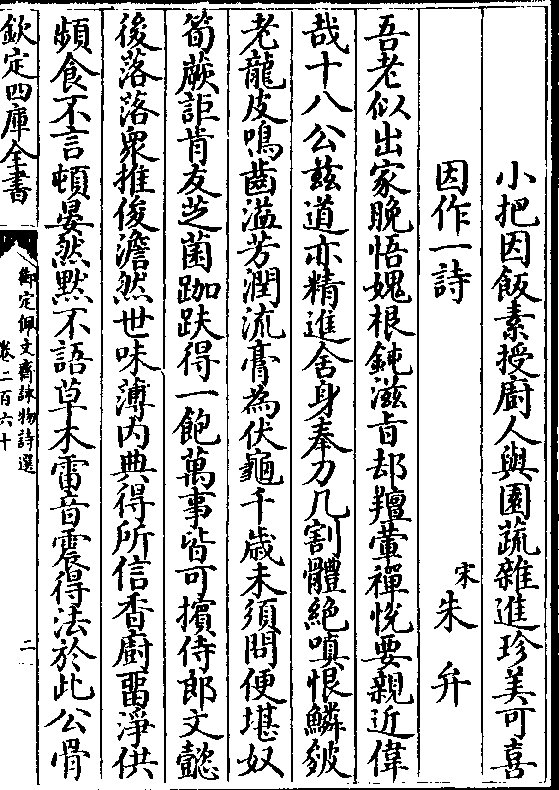 小把因飯素授廚人與園蔬雜進珍美可喜
因作一詩
宋朱弁
吾老似出家晚悟媿根鈍滋旨却羶葷禪悅要親近偉
哉十八公兹道亦精進舍身奉刀几割體絶嗔恨鱗皴
老龍皮鳴齒溢芳潤流膏為伏龜千歲未須問便堪奴
筍蕨詎肯友芝菌跏趺得一飽萬事皆可擯侍郎文懿
後落落衆推俊澹然世味薄内典得所信香廚留淨供
頻食不言頓晏然默不語草木雷音震得法於此公骨
欽定四庫全書
御定佩文齋詠物詩選
卷二百六十
二